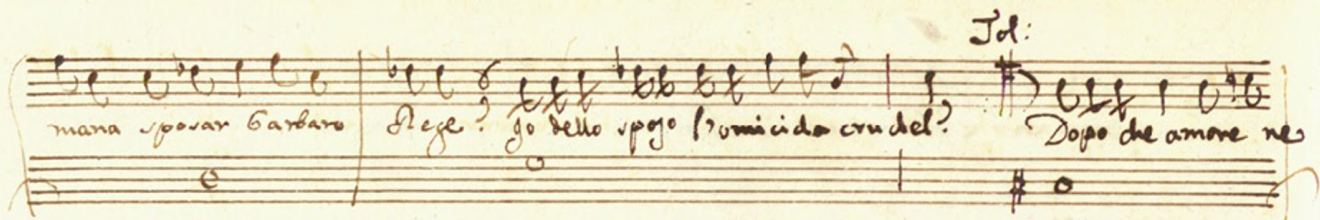 Tol:
mana sposar barbaro Rege? Jo dello sposo homicida crudel? Dopo che amore ne